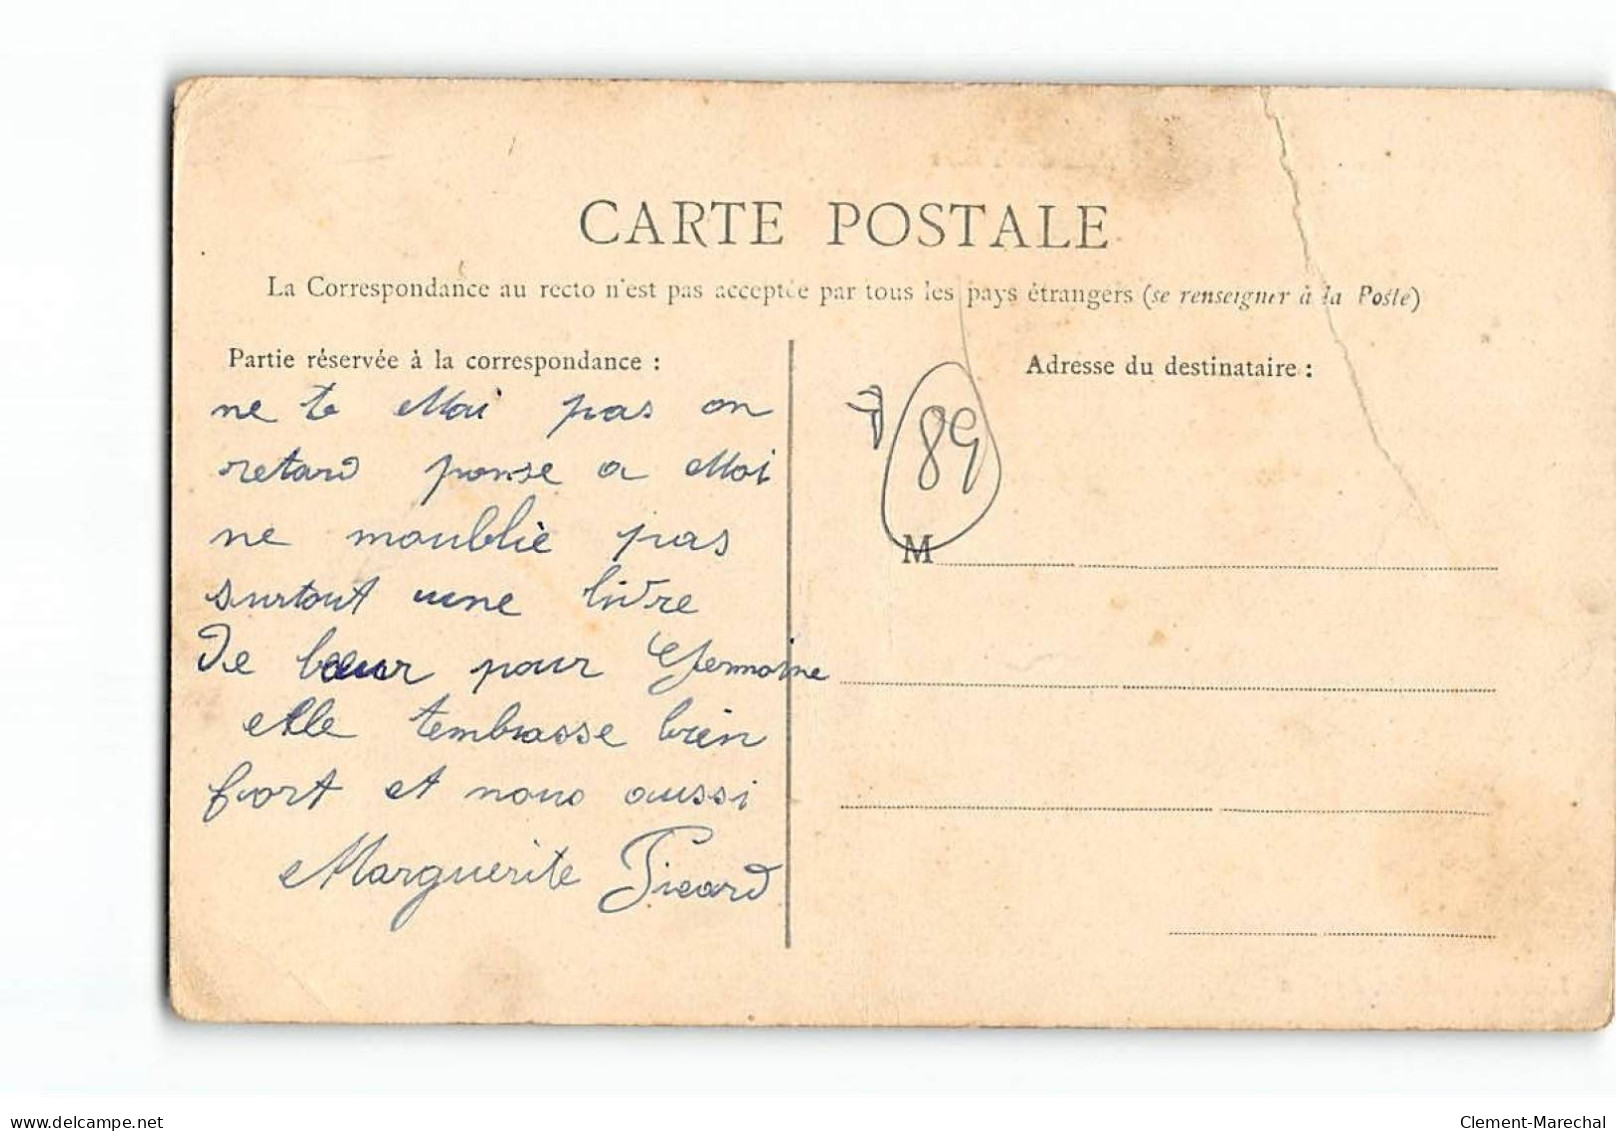 CARTE POSTALE
La Correspondance au recto n'est pas acceptée par tous les pays étrangers (se renseigner à la Poste)
Partie réservée à la correspondance :
ne te Mai pas on
retard ponse a Moi
ne moublie pas
surtout une livre
De beur pour Germaine
elle tembrasse bien
fort et nous aussi
Marguerite Picard
Adresse du destinataire :
89
M
www.delcampe.net
Clement-Marechal